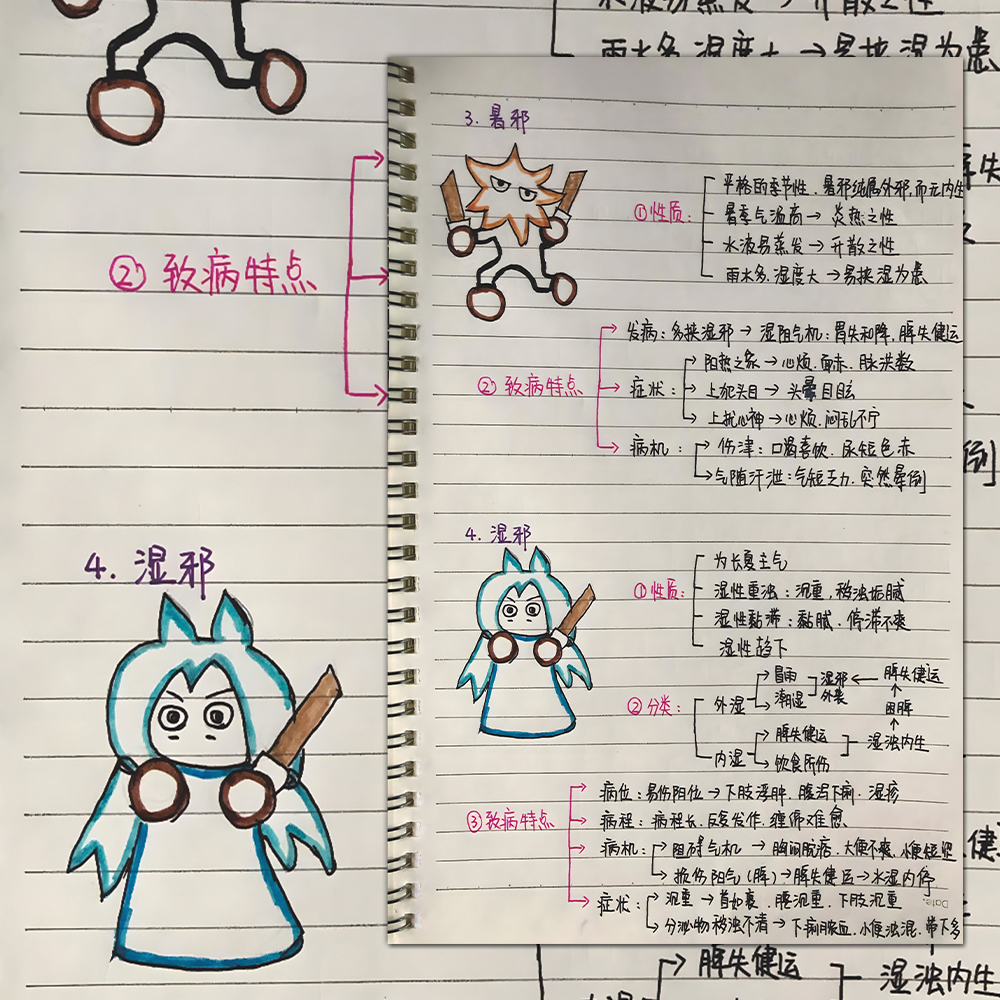 水液易蒸发→开散之性
雨水多.湿度大→易挟湿为患
②致病特点
4. 湿邪
3. 暑邪
①性质:
严格的季节性.暑邪纯属外邪,而无内生
暑季气温高→炎热之性
水液易蒸发→开散之性
雨水多.湿度大→易挟湿为患
②致病特点
发病:多挟湿邪→湿阻气机:胃失和降,脾失健运
症状:
阳热之象→心烦.面赤.脉洪数
上犯头目→头晕目眩
上扰心神→心烦.闷乱不宁
病机:
伤津:口渴喜饮.尿短色赤
气随汗泄:气短乏力.突然晕倒
4. 湿邪
①性质:
为长夏主气
湿性重浊:沉重,秽浊垢腻
湿性黏滞:黏腻.停滞不爽
湿性趋下
②分类:
外湿
冒雨
潮湿
湿邪外袭
脾失健运
困脾
湿浊内生
内湿
脾失健运
饮食所伤
③致病特点
病位:易伤阳位→下肢浮肿.腹泻下痢.湿疹
病程:病程长.反复发作.缠绵难愈
病机:
阻碍气机→胸闷脘痞.大便不爽.小便短涩
损伤阳气(脾)→脾失健运→水湿内停
症状:
沉重→首如裹.腰沉重.下肢沉重
分泌物秽浊不清→下痢脓血.小便浊混.带下多
Date.
脾失
倒
健
脾失健运
湿浊内生